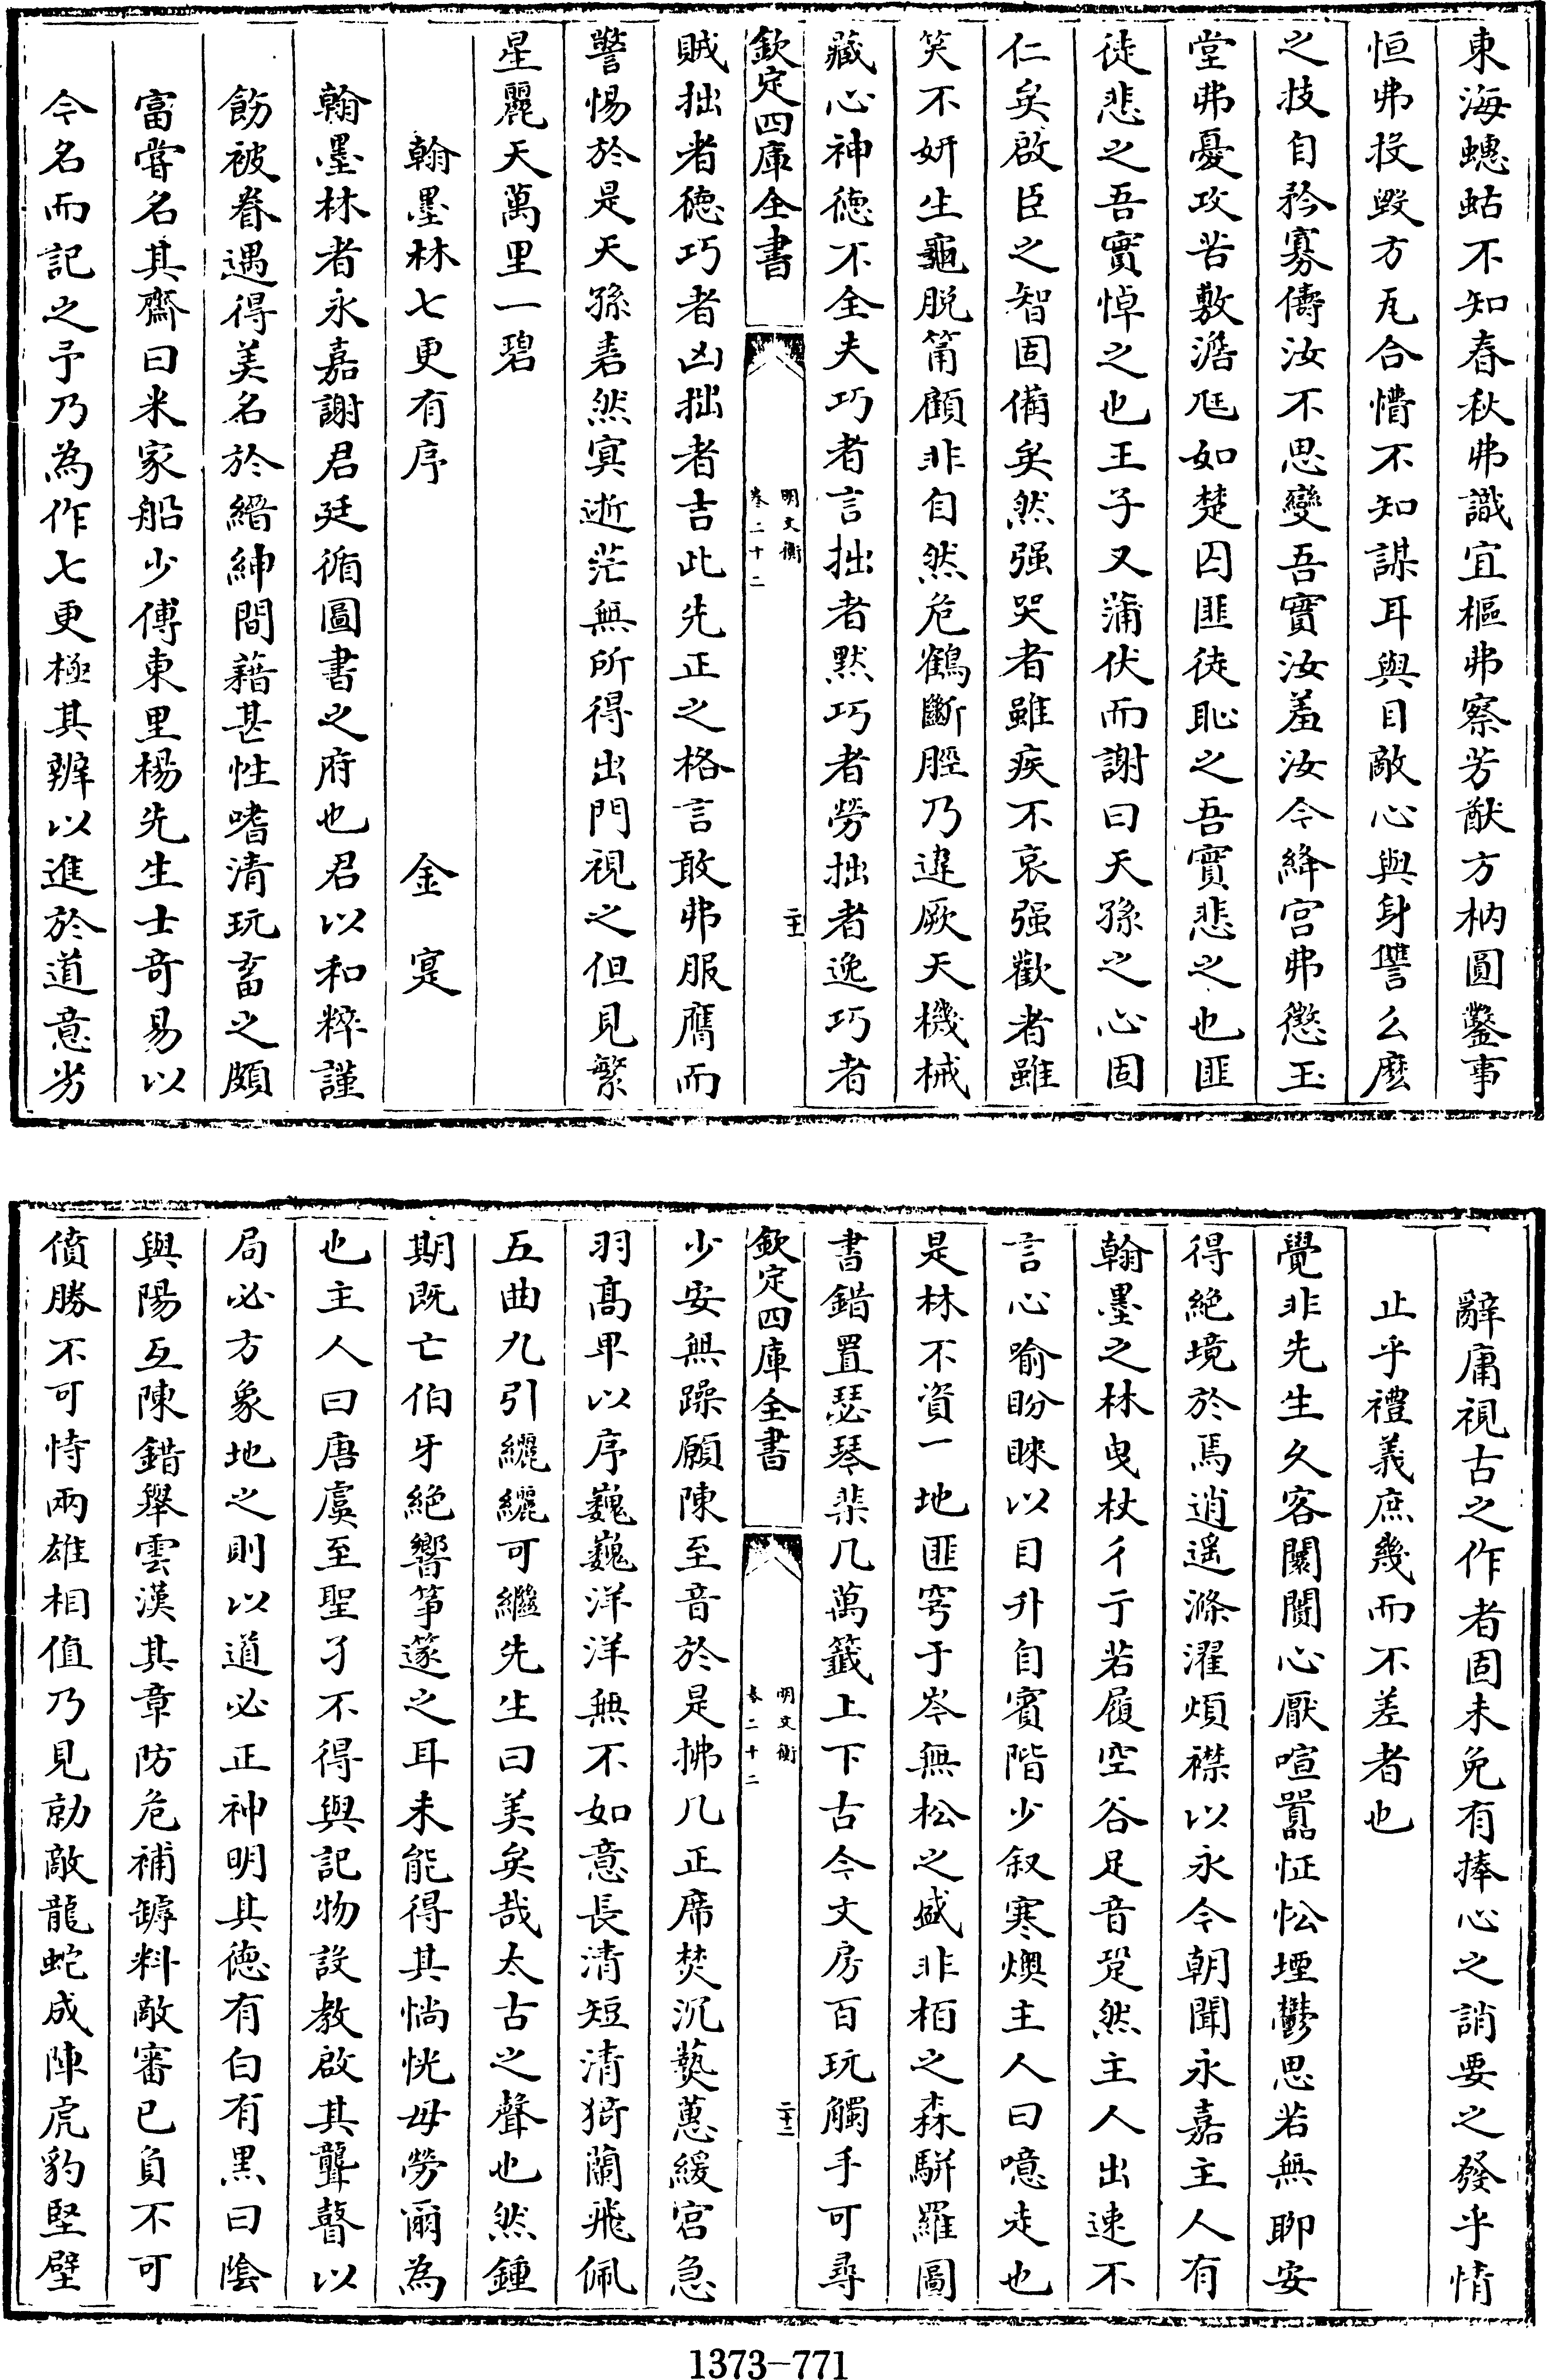 東海蟪蛄不知春秋弗識宜樞弗察芳猷方枘圓鑿事
恒弗投毀方瓦合懵不知謀耳與目敵心與身讐么麽
之技自矜寡儔汝不思變吾實汝羞汝今絳宫弗懲玉
堂弗憂攻苦敷澹尫如楚囚匪徒恥之吾實悲之也匪
徒悲之吾實悼之也王子又蒲伏而謝曰天孫之心固
仁矣啟臣之智固備矣然强哭者雖疾不哀强歡者雖
笑不妍生龜脱筩顧非自然危鶴斷脛乃違厥天機械
藏心神徳不全夫巧者言拙者黙巧者勞拙者逸巧者
欽定四庫全書
明文衡
卷二十二
二十一
賊拙者徳巧者凶拙者吉此先正之格言敢弗服膺而
警惕於是天孫砉然寞逝茫無所得出門視之但見繁
星麗天萬里一碧
翰墨林七更有序 金寔
翰墨林者永嘉謝君廷循圖書之府也君以和粹謹
飭被眷遇得美名於縉紳間藉甚性嗜清玩畜之頗
富嘗名其齋曰米家船少傅東里楊先生士竒易以
今名而記之予乃為作七更極其辨以進於道意劣
辭庸視古之作者固未免有捧心之誚要之發乎情
止乎禮義庶幾而不差者也
覺非先生久客闤闠心厭喧囂怔忪堙鬱思若無聊安
得絶境於焉逍遥滌濯煩襟以永今朝聞永嘉主人有
翰墨之林曳杖彳亍若履空谷足音跫然主人出速不
言心喻盼睞以目升自賓階少叙寒燠主人曰噫走也
是林不資一地匪穹于岑無松之盛非栢之森駢羅圖
書錯置瑟琴棐几萬籤上下古今文房百玩觸手可尋
欽定四庫全書
明文衡
卷二十二
二十二
少安無躁願陳至音於是拂几正席焚沉爇蕙緩宫急
羽髙卑以序巍巍洋洋無不如意長清短清猗蘭飛佩
五曲九引纚纚可繼先生曰美矣哉太古之聲也然鍾
期既亡伯牙絶響箏篴之耳未能得其惝恍毋勞爾為
也主人曰唐虞至聖子不得與記物設教啟其聾瞽以
局必方象地之則以道必正神明其徳有白有黒曰隂
與陽互陳錯舉雲漢其章防危補罅料敵審已負不可
僨勝不可恃兩雄相值乃見勍敵龍蛇成陣虎豹堅壁
1373-771